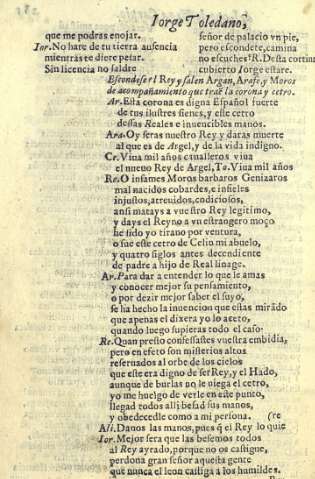 Iorge Toledano,
que me podras enojar.
Ior. No hare de tu tierra ausencia
mientras te diere pesar.
Sin licencia no saldre
señor de palacio vn pie,
pero escondete, camina
no escuches? R. Desta cortina
cubierto Iorge estare.
Escondese el Rey, y salen Argan, Arafe, y Moros
de acompañamiento que traē la corona y cetro.
Ar. Esta corona es digna Español fuerte
de tus ilustres sienes, y este cetro
dessas Reales e inuencibles manos.
Ara. Oy seras nuestro Rey y daras muerte
al que es de Argel, y de la vida indigno.
Cr. Viua mil años caualleros viua
el nueuo Rey de Argel, To. Viua mil años
Re. O infames Moros barbaros Genizaros
mal nacidos cobardes, e infieles
injustos, atreuidos, codiciosos,
ansi matays a vuestro Rey legitimo,
y days el Reyno a vn estrangero moço
he sido yo tirano por ventura,
o fue este cetro de Celio mi abuelo,
y quatro siglos antes decendiente
de padre a hijo de Real linage.
Ar. Para dar a entender lo que le amas
y conocer mejor su pensamiento,
o por dezir mejor saber el suyo,
se ha hecho la inuencion que estas mirādo
que apenas el dixera yo lo aceto,
quando luego supieras todo el caso.
Re. Quan presto confessastes vuestra embidia,
pero en efeto son misterios altos
reseruados al orbe de los cielos
que este era digno de ser Rey, y el Hado,
aunque de burlas no le niega el cetro,
yo me huelgo de verle en este punto,
llegad todos alli besad sus manos,
y obedecelde como a mi persona. (re
Ali. Danos las manos, pues q̄ el Rey lo quie
Ior. Mejor sera que las besemos todos
al Rey ayrado, porque no os castigue,
perdona gran señor aquesta gente
que nunca el leon castiga a los humildes.